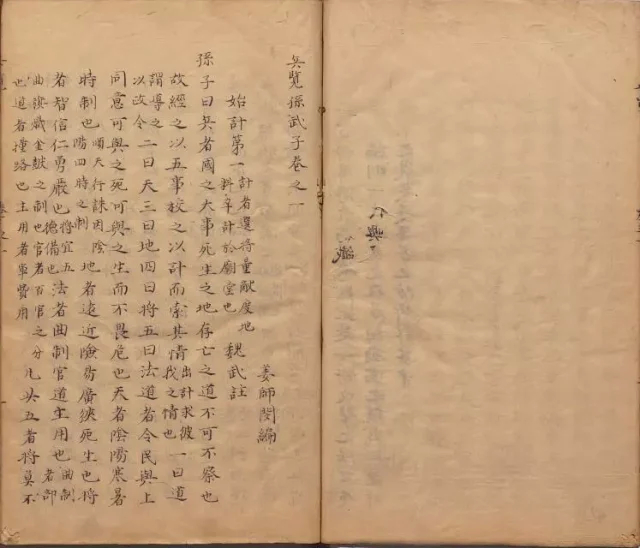 兵覽孫武子卷之一
姜師閔編
始計第一 計者選將量敵度地料卒計於廟堂也 魏武註
孫子曰兵者國之大事死生之地存亡之道不可不察也
故經之以五事校之以計而索其情 出計求彼我之情也 一曰道
謂導之以政令 二曰天三曰地四曰將五曰法道者令民與上
同意可與之死可與之生而不畏危也天者陰陽寒暑
時制也 順天行誅因陰陽四時之制 地者遠近險易廣狹死生也將
者智信仁勇嚴也 將宜五德備也 法者曲制官道主用也 曲制者部
曲旗幟金鼓之制也官者百官之分也道者糧路也主用者軍費用 凡此五者將莫不